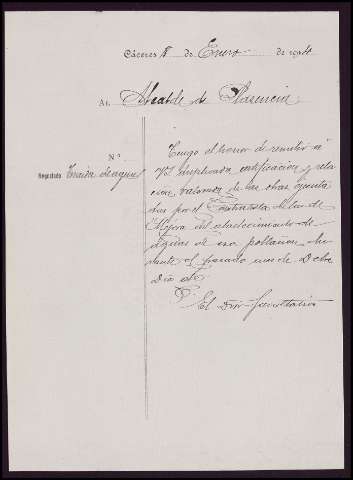 Cáceres 8 de Enero de 19
Al Alcalde de Plasencia
Nº
Negociado Traida de aguas
Tengo el honor de remitir á
VS duplicada certificación y rela
cion valorada de las obras ejecuta
das por el Contratista de las de
Mejora del abastecimiento de
aguas de esa poblacion du
rante el pasado mes de Dcbre
Dios etc
El Dor Facultativo